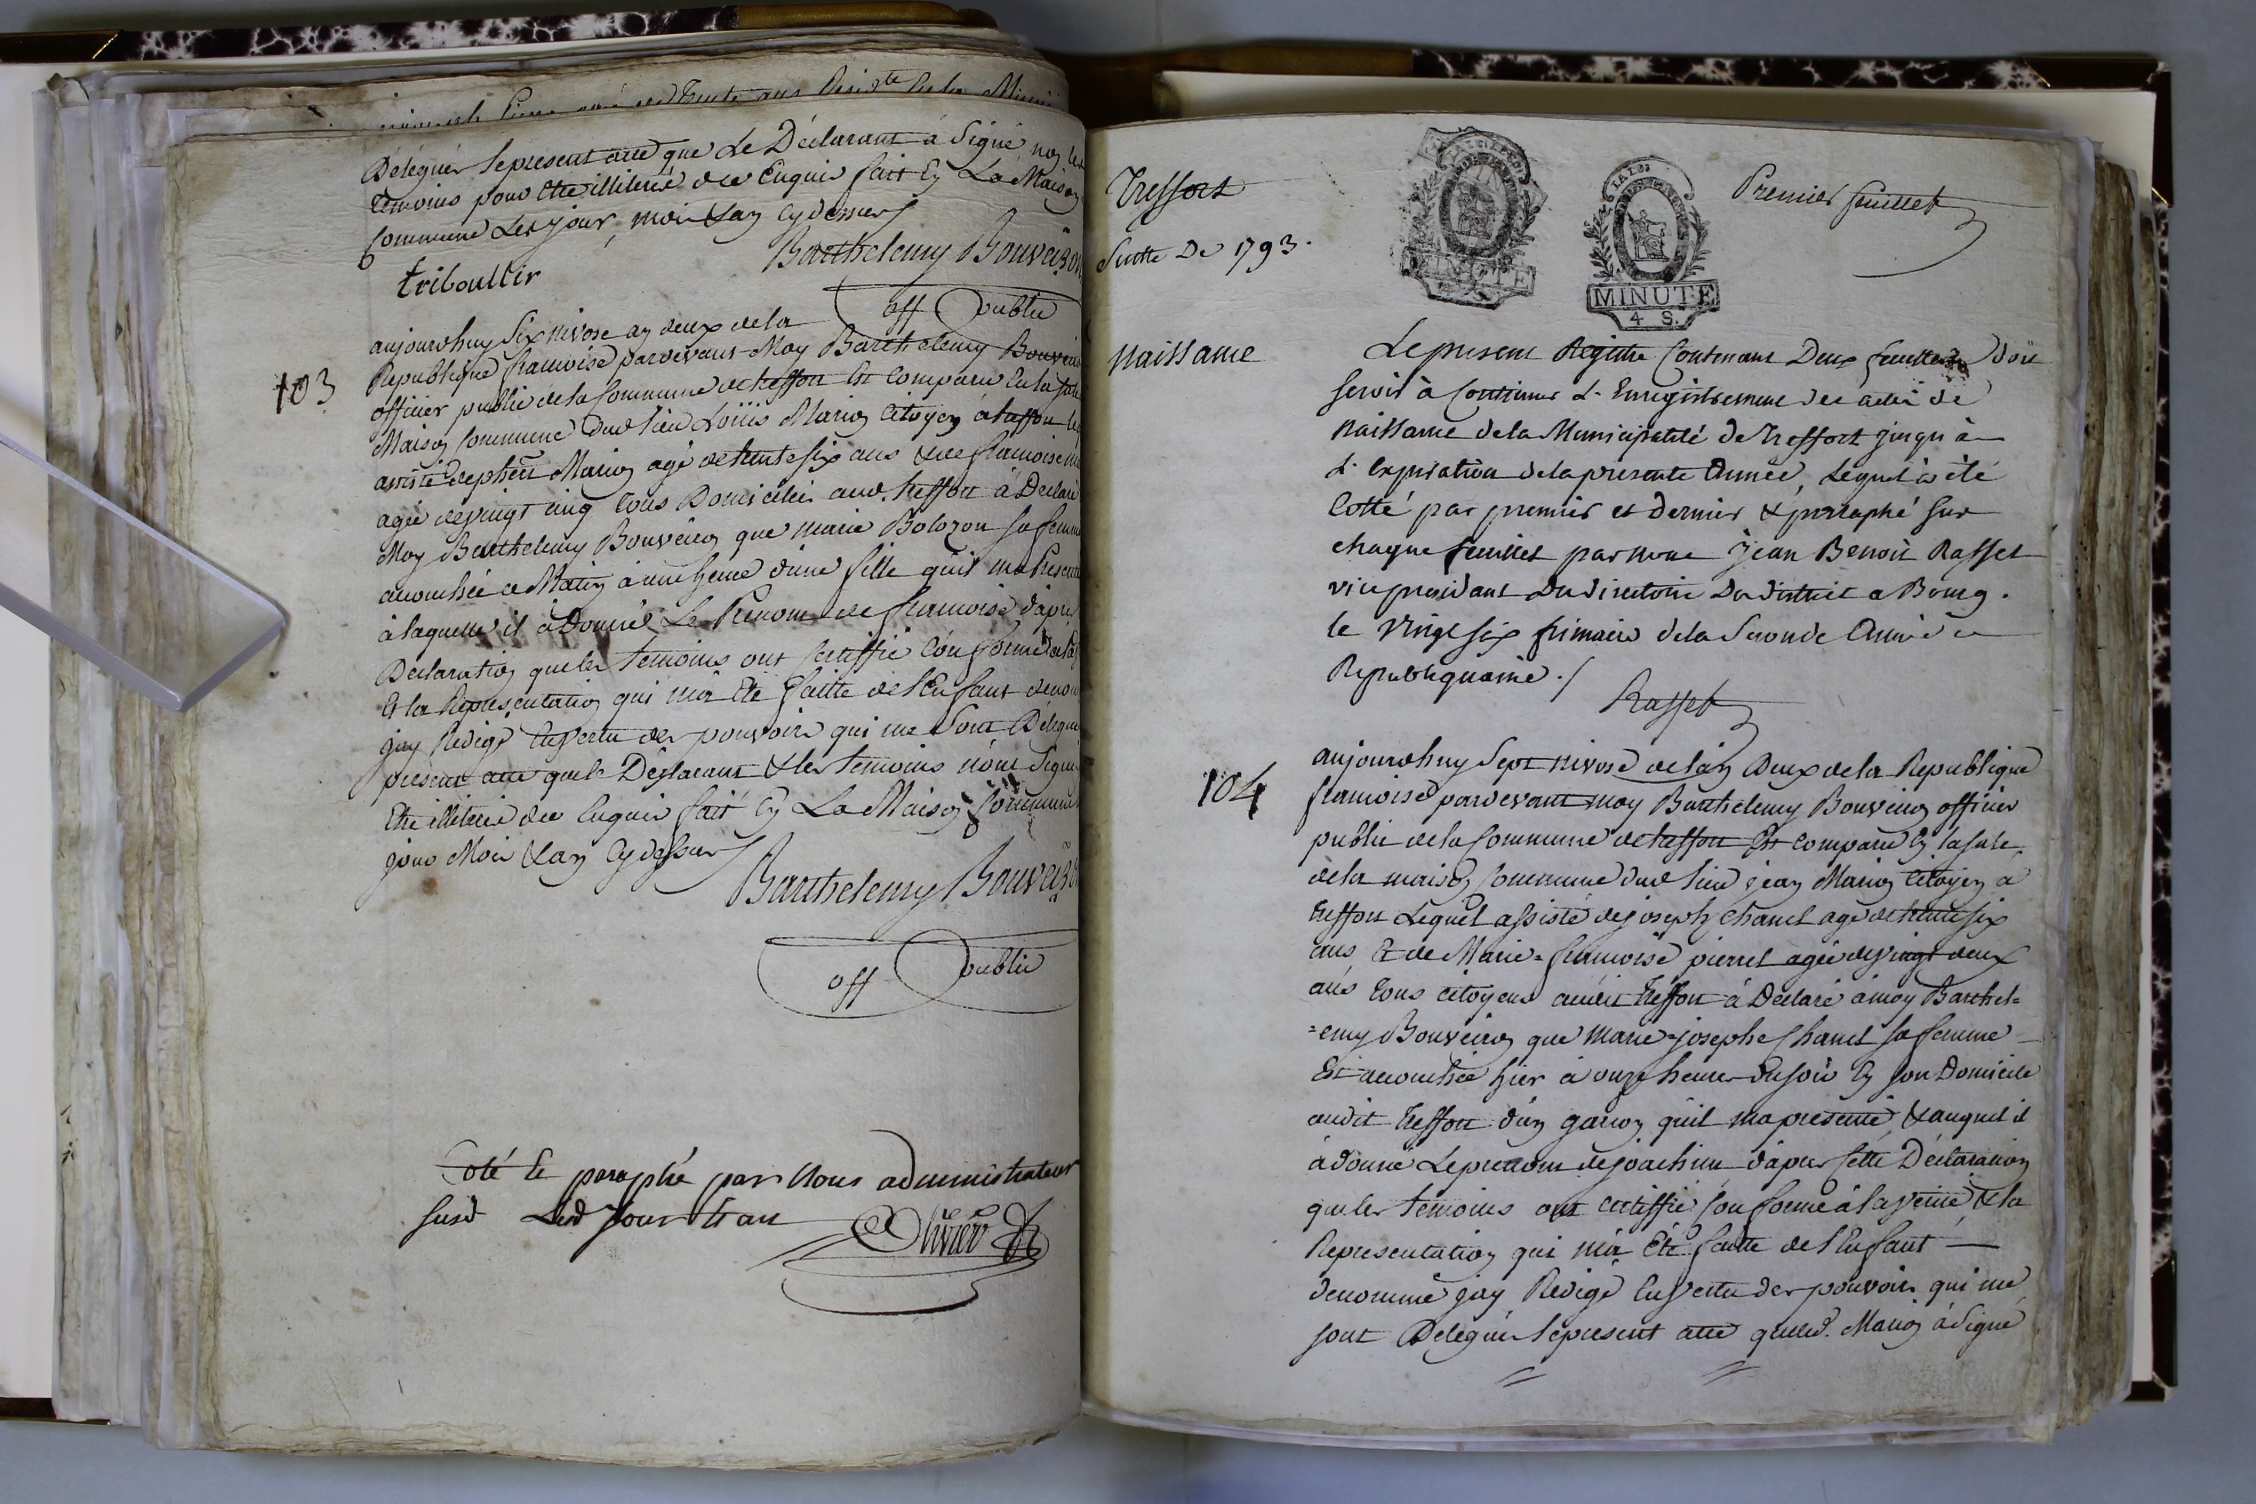 Délégués le present acte que Le Déclarant à Signé non les
témoins pour être illiteré de ce Enquis fait En La Maison
Commune Les jour, mois & an Cy dessus
Barthelemy Bouveiron
triboullir
off Public
103
aujourdhuy Six nivose an deux de la
Republique francoise pardevant Moy Barthelemy Bouveiron
officier public de la Commune de treffort Est Comparu En la sale
Maison Commune dud lieu Louis Marion Citoyen à treffort
assisté Marion agé de trente six ans & de francoise
agée de vingt cinq tous Domiciliés aud. treffort à Declaré
Moy Barthelemy Bouveiron que marie Bolozon sa femme
accouchée ce Matin à une heure d'une fille quil ma Presenté
à laquelle il à Donné Le Prenom de francoise d'après
Declaration que les temoins ont Certiffié Conforme
Et la Representation qui m'a Eté faitte de l'Enfant denommé
jay Redigé En Vertu des pouvoirs qui me Sont Délégués
présent acte que le Déclarant & les temoins n'ont Signé
Etre illiterés de ce Enquis fait En La Maison Commune
jour Mois & an Cy dessus
Barthelemy Bouveiron
off Public
Coté Et paraphé par Nous administrateur
susd Led Jour & an
Olivier
Treffort
Suitte De 1793.
MINUTE
4 S.
Premier feuillet
Naissance
Le present Registre Contenant Deux feuillets doit
servir à Continuer L'Enregistrement des actes de
Naissance de la Municipalité de Treffort jusqu'à
L'expiration de la presente Année, Lequel a été
Cotté par premier et dernier & paraphé sur
chaque feuillet par nous Jean Benoit Rasset
vice president Du directoire Du district a Bourg.
le Vingt six frimaire de la Seconde Année
Republiquaine ./
Rasset
104
aujourdhuy Sept nivose de l'an Deux de la Republique
francoise pardevant moy Barthelemy Bouveiron officier
public de la Commune de treffort Est comparu En la sale
de la maison Commune dud lieu jean Marion Citoyen a
treffort Lequel assisté de joseph Chanel agé de trente six
ans Et de Marie-francoise pierrel agée de vingt deux
ans tous Citoyens audit treffort à Déclaré à moy Barthel=
=emy Bouveiron que marie-josephe Chanel sa femme
Est accouchée hier à onze heures du soir En son Domicile
audit treffort d'un garçon qu'il ma presenté, & auquel il
à donné Le prenom de joachim d'après Cette Déclaration
que les temoins ont certiffié Conforme à la verité, & la
Representation qui m'a Eté faitte de l'Enfant
denommé jay Redigé En Vertu des pouvoirs qui me
sont Délégués le present acte que led. Marion à Signé